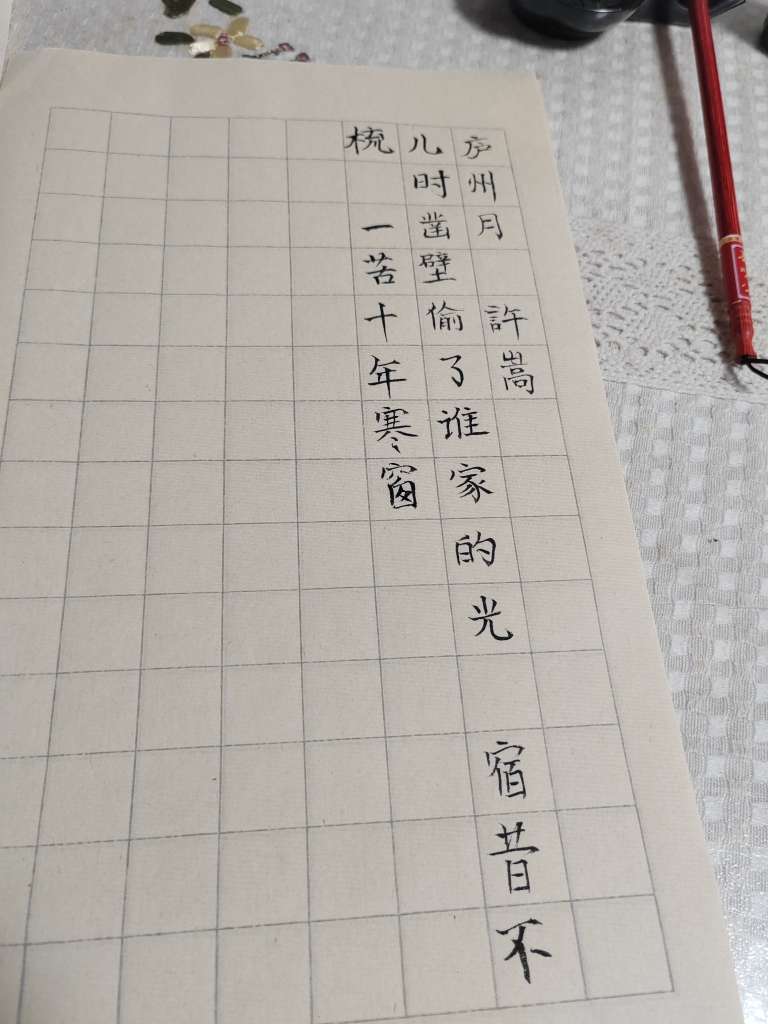 庐州月 許嵩
儿时凿壁偷了谁家的光 宿昔不
梳 一苦十年寒窗